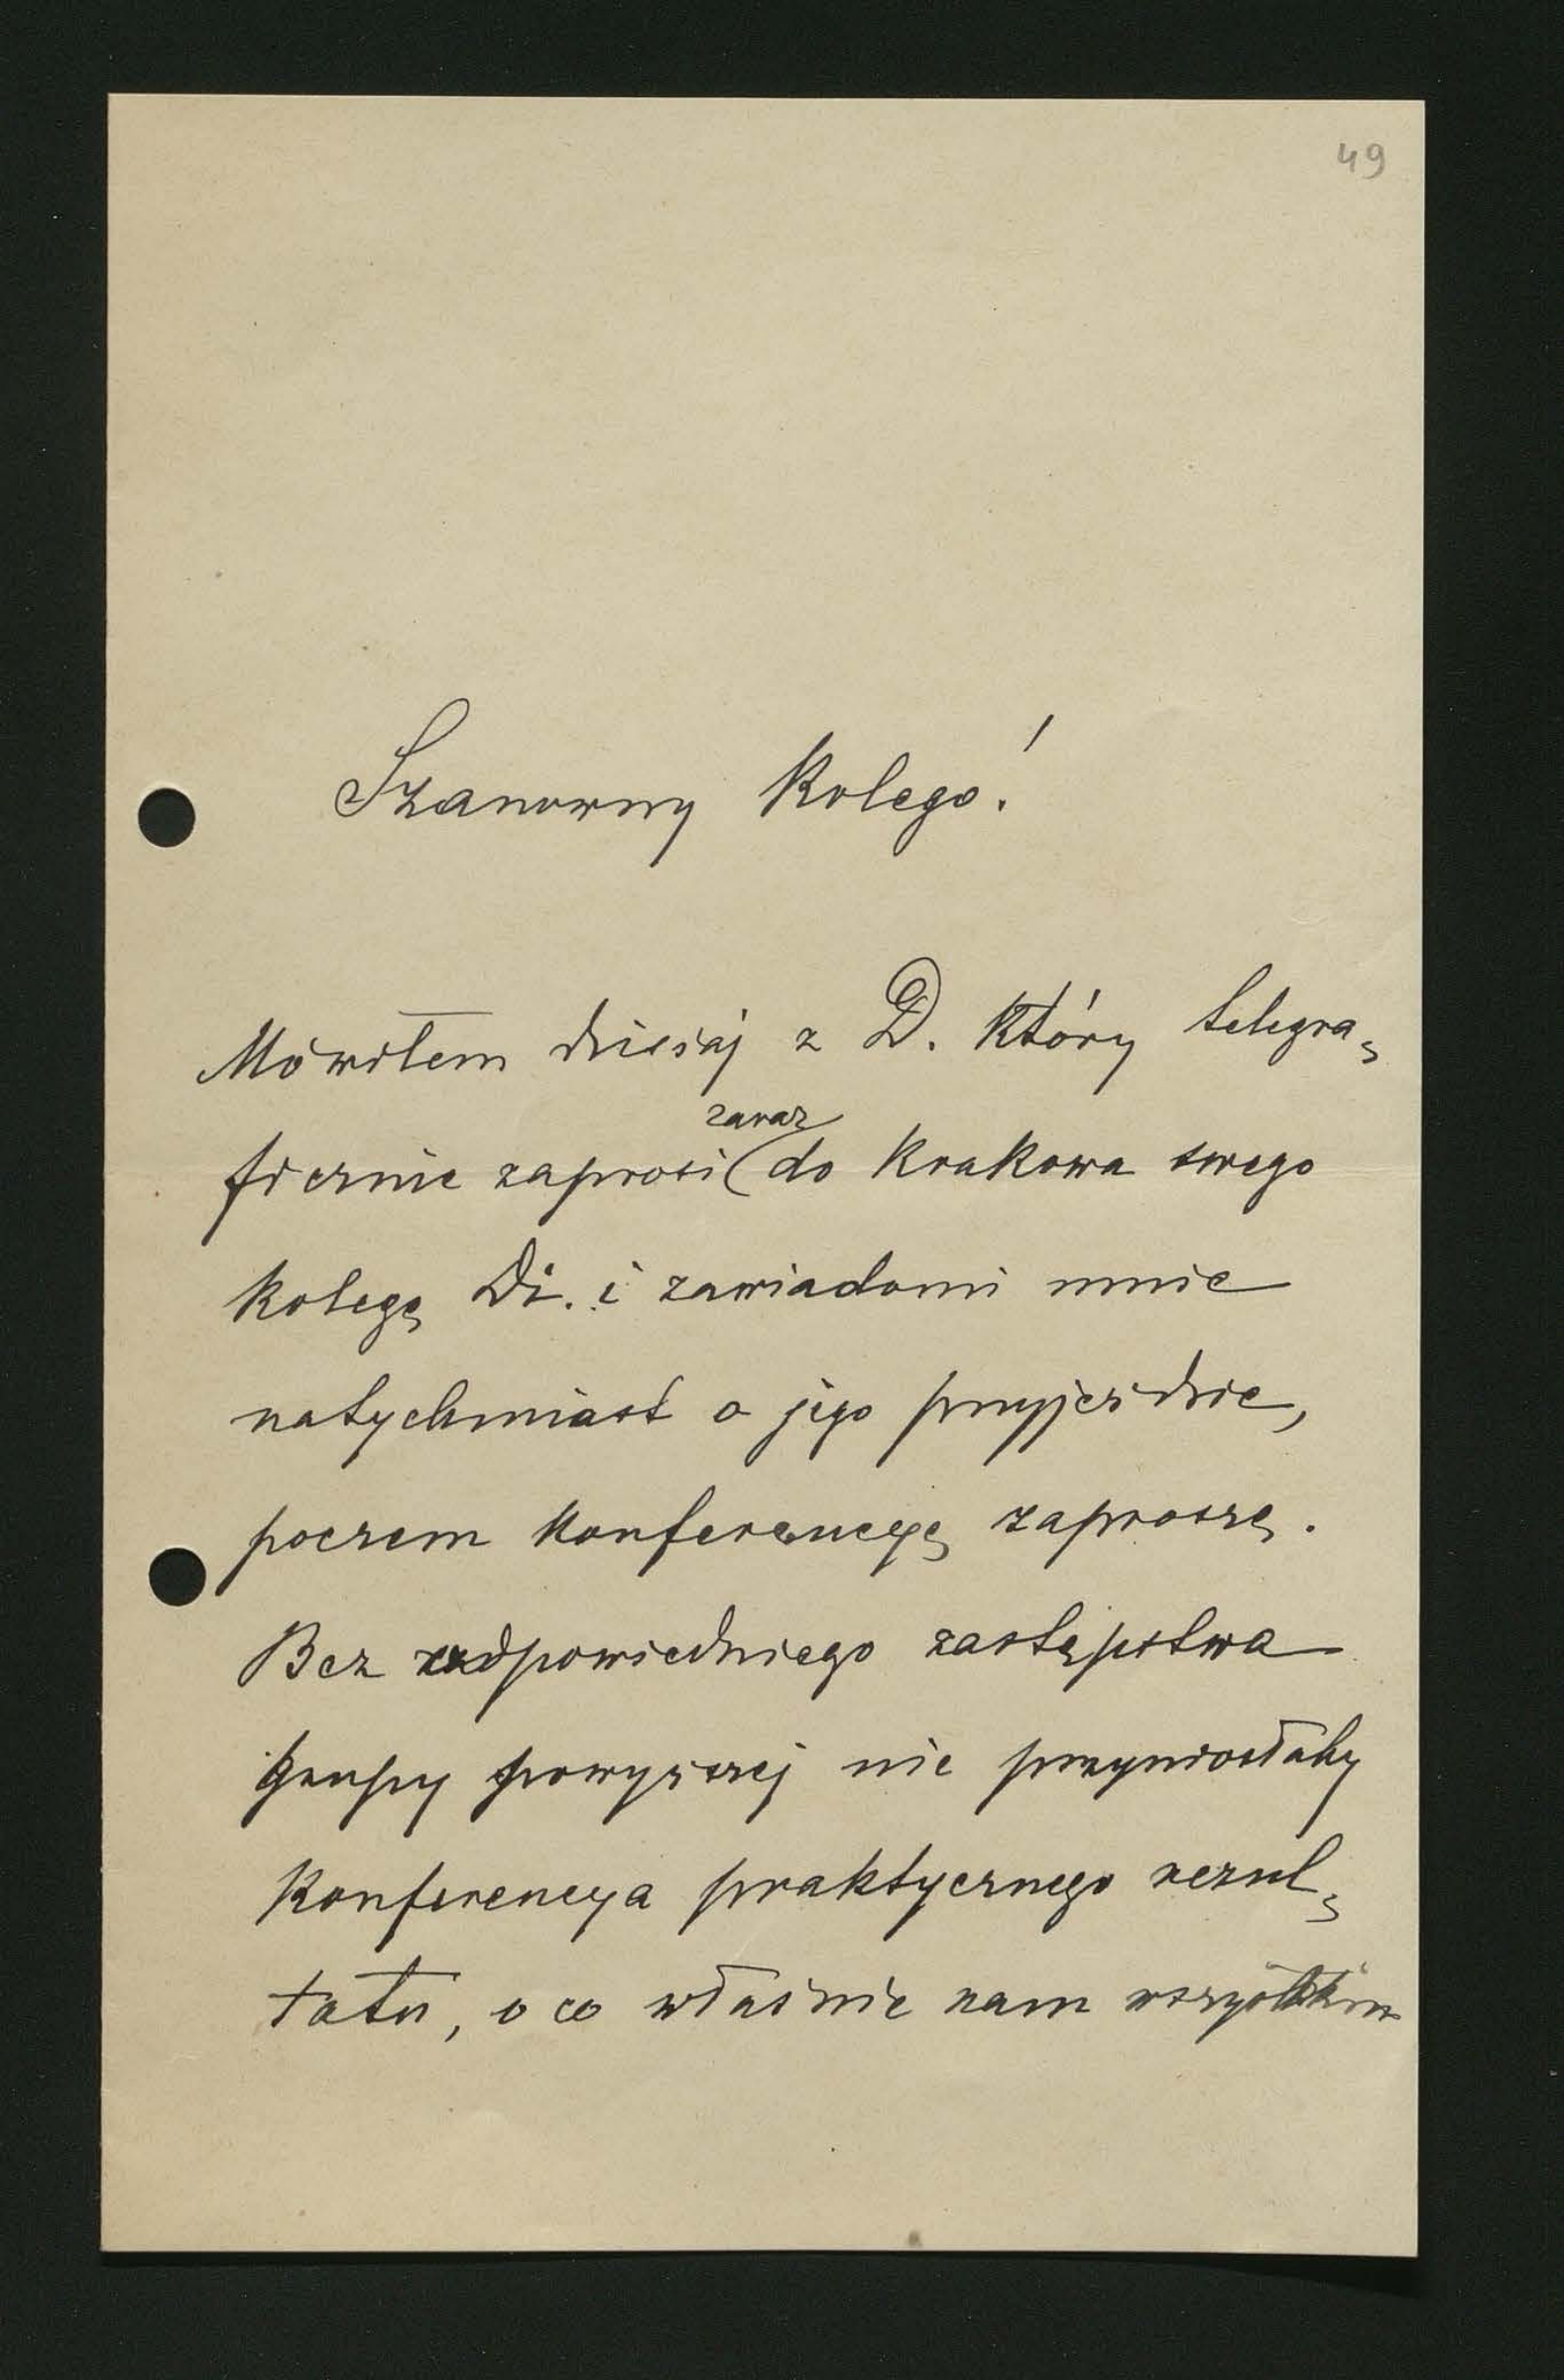 49
Szanowny Kolego!
Mówiłem dzisiaj z D. który telegra-
ficznie zaprosi zaraz do Krakowa swego
kolegę Di. i zawiadomi mnie
natychmiast o jego przyjeździe,
poczem konferencyę zaproszę.
Bez odpowiedniego zastępstwa
grupy powyższej nie przyniosłaby
konferencya praktycznego rezul-
tatu, o co właśnie nam wszystkim